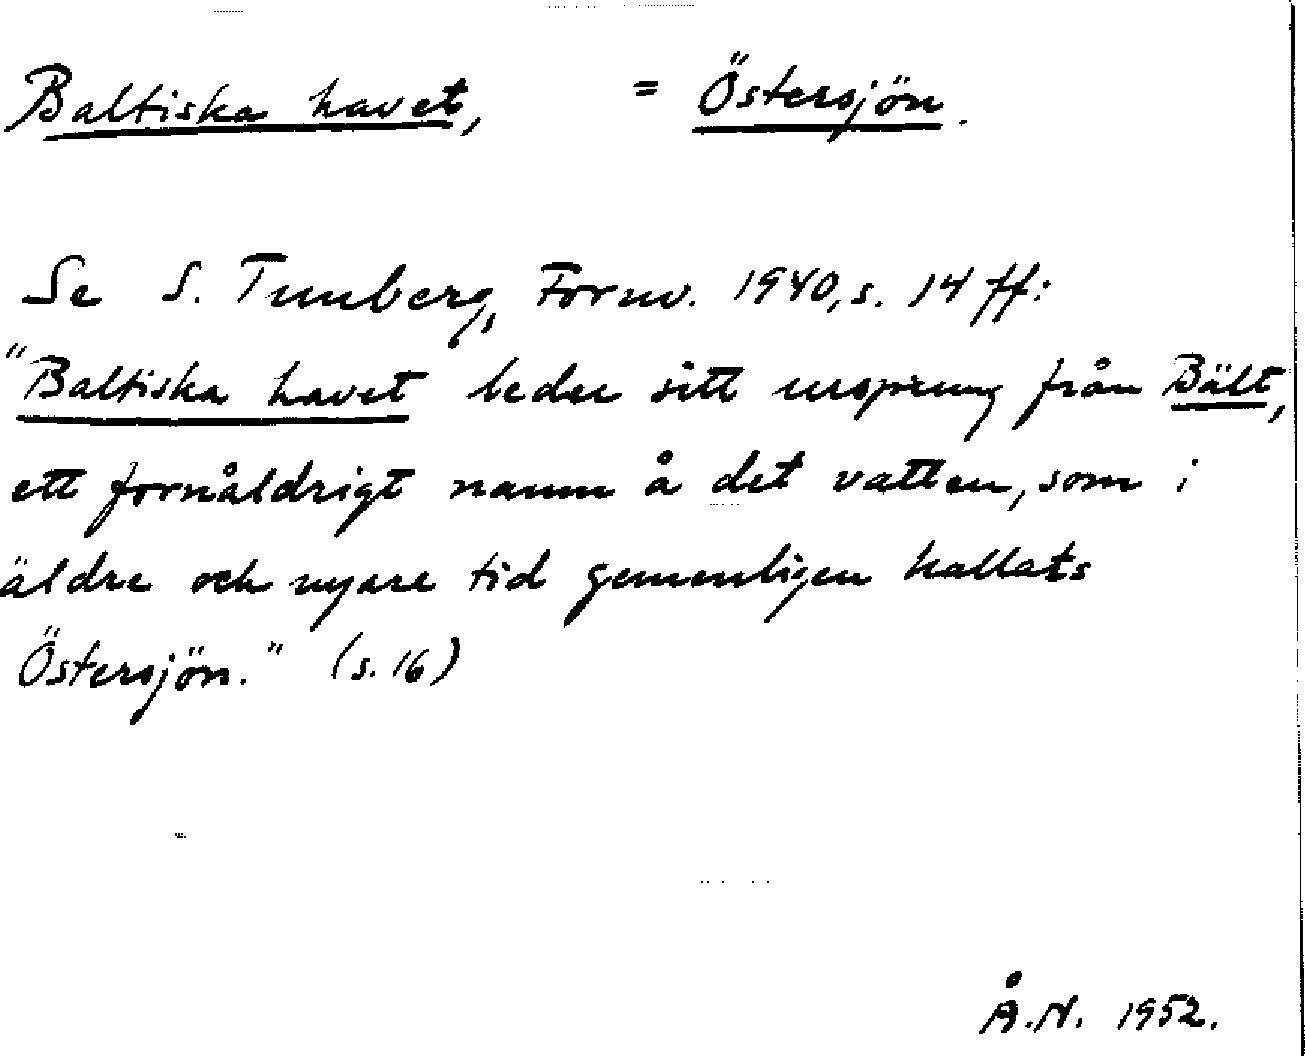 Baltiska havet, = Östersjön.
Se S. Tunberg, Fornv. 1940, s. 14 ff:
"Baltiska havet leder sitt ursprung från Bält,
ett fornåldrigt namn å det vatten, som i
äldre och nyare tid gemenligen kallats
Östersjön." (s. 16)
Å.N. 1952.